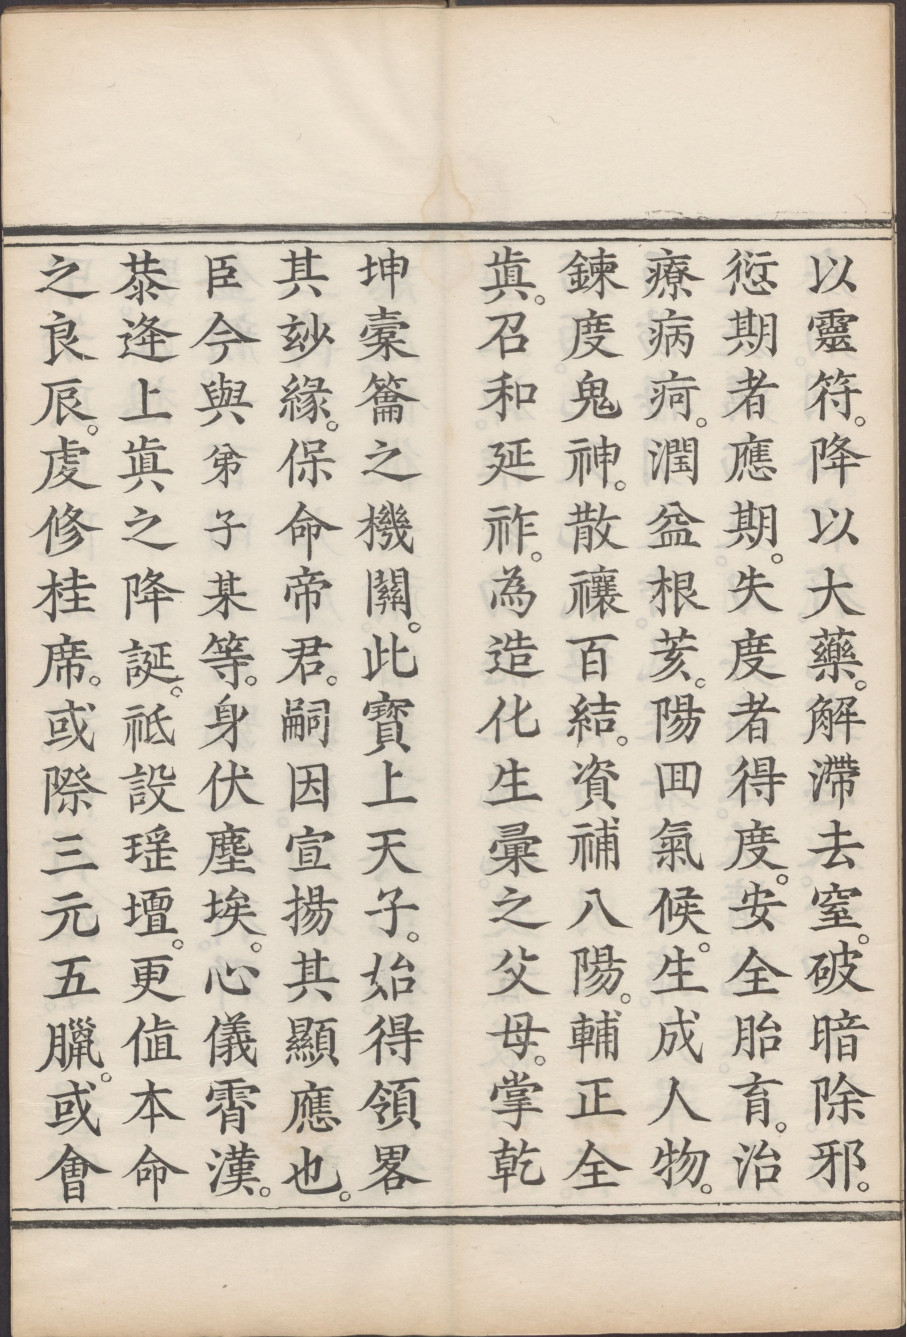 以靈符。降以大藥。解滯去窒。破暗除邪。
愆期者應期。失度者得度。安全胎育。治
療病疴。潤益根荄。陽回氣候。生成人物。
鍊度鬼神。散禳百結。資補八陽。輔正全
眞。召和延祚。為造化生彙之父母。掌乾
坤橐籥之機關。此寳上天子。始得領畧
其玅緣。保命帝君。嗣因宣揚其顯應也。
臣今與弟子某等。身伏塵埃。心儀霄漢。
恭逢上眞之降誕。祗設瑶壇。更值本命
之良辰。虔修桂席。或際三元五臘。或會